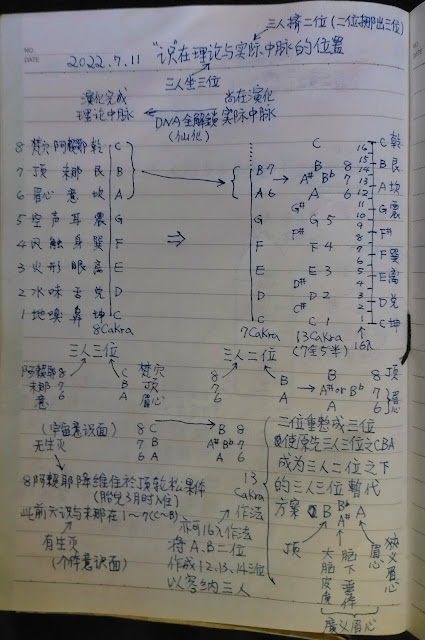 三人擠二位(二位挪出三位)
NO.
DATE
2022.7.11 "识"在理論与实际中脉的位置
三人坐三位
演化完成 尚在演化
理論中脉 实际中脉
DNA全解鎖
(仙化)
8 梵穴 阿賴耶 乾 C
7 頂 末那 艮 B
6 眉心 意 坎 A
5 空声耳震 G
4 风触身巽 F
3 火形眼离 E
2 水味舌兑 D
1 地嗅鼻坤 C
8Cakra
⇒
B 7
A 6
G
F
E
D
C
7Cakra
C
B 8
A# Bb 7
A 6
G#
G 5
F#
F 4
E 3
D#
D 2
C# C 1
13Cakra
(7全5半)
16 C 乾
15
14 B 艮
13
12 A 坎
11
10 G 震
9
8 F#
7
6 F 巽
5 E 离
4
3 D 兑
2
1 C 坤
16R
三人三位
阿賴耶 8 C 梵穴
末那 7 B 頂
意 6 A 眉心
三人二位
8
7 B
6 A
B 8 頂
A# or Bb 7
A 6 眉心
(宇宙意識面)
无生灭
8 C B 8
7 B A# Bb 7
6 A A 6
8阿賴耶降维住於頂轮松果体
(胎兒3月时入住)
此前六识与末那在1~7(C~B)
有生灭
(个体意識面)
13
Cakra
作法
亦可16R作法
将A.B二位
作成12.13.14三位
以容纳三人
二位重整成三位
使原先三人三位之CBA
成为三人二位之下
的三人三位暫代
方案 B Bb A
A#
頂
大脑皮质
脑下垂体
眉心
狭义眉心
廣义眉心